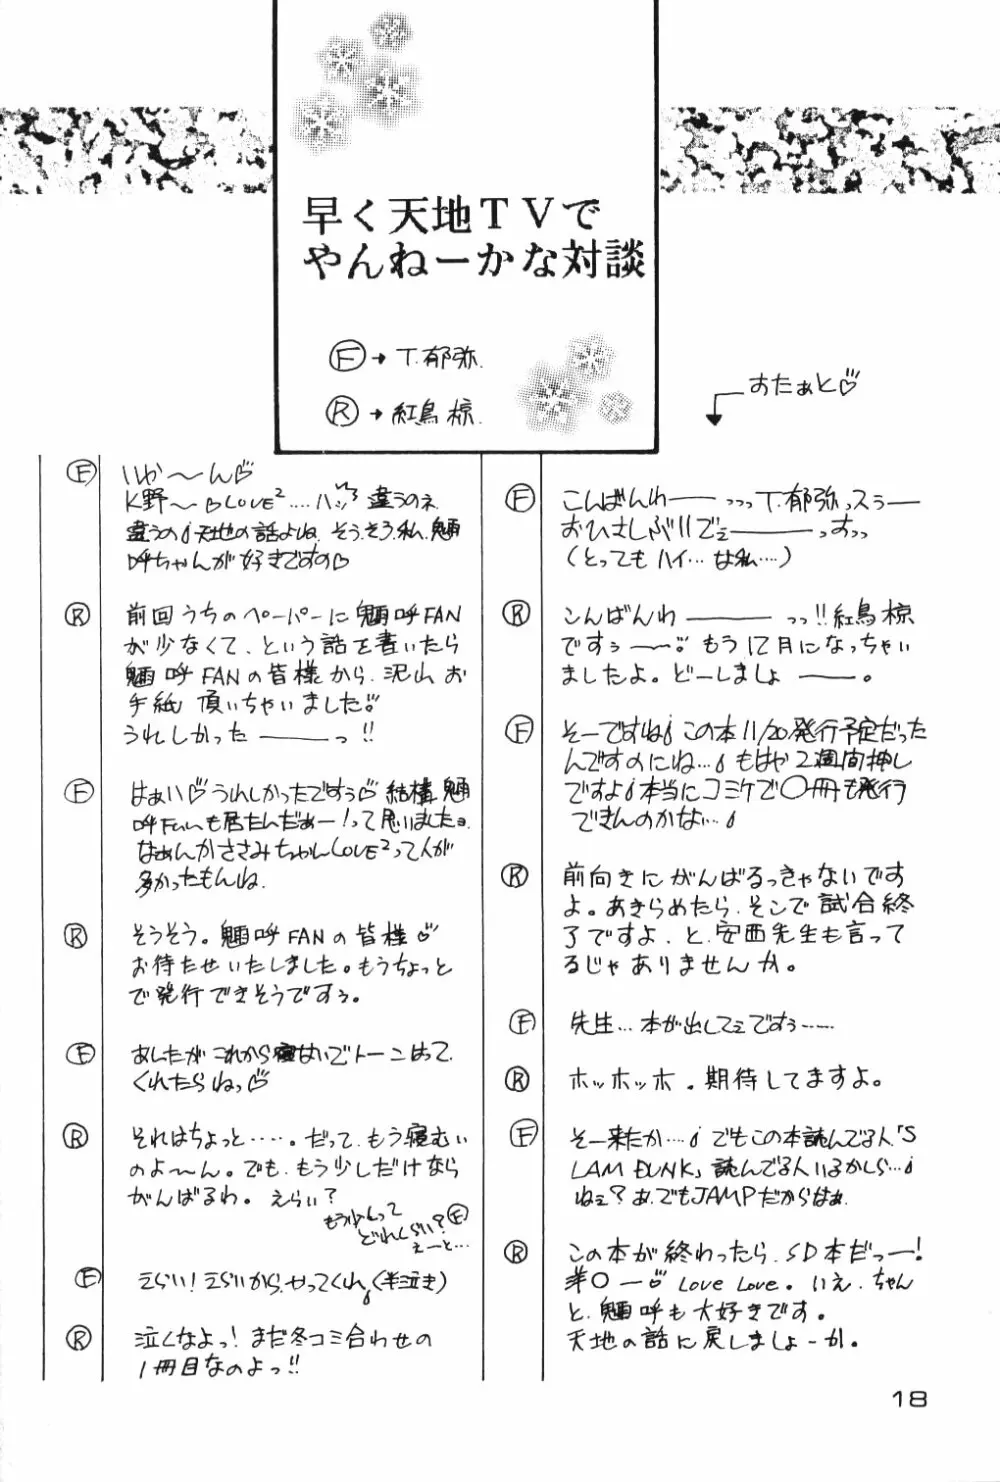 早く天地TVで
やんねーかな対談
Ⓕ→T.郁弥.
Ⓡ→紅鳥 椋.
おたぁと♡
Ⓕ こんばんわ――っっっT.郁弥っスぅ――
おひさしぶりでぇ――っすっっ
(とってもハイ…な私…)
Ⓡ こんばんわ――っっ!!紅鳥 椋
ですぅ――。もう12月になっちゃい
ましたよ。どーしましょ――。
Ⓕ そーですね♩この本11/20発行予定だった
んですのにね…♩もはや2週間押し
ですよ♩本当にコミケで〇冊も発行
できんのかな…♩
Ⓡ 前向きにがんばるっきゃないです
よ。あきらめたら、そこで試合終
了ですよ、と、安西先生も言って
るじゃありませんか。
Ⓕ 先生…本が出してぇですぅ……
Ⓡ ホッホッホ。期待してますよ。
Ⓕ そー来たか…♩でもこの本読んでる人「S
LAM DUNK」読んでる人いるかしら…♩
ねぇ?あ、でもJAMPだからはぁ
Ⓡ この本が終わったら、SD本だっ――!
洋〇―♡ Love Love。いえ、ちゃん
と、魎呼も大好きです。
天地の話に戻しましょーか。
Ⓕ いか〜ん♡
K野〜♡LOVE²….ハッ 違うのネ
違うの♩天地の話よね。そうそう私、魎
呼ちゃんが好きですの♡
Ⓡ 前回うちのペーパーに魎呼FAN
が少なくて、という話を書いたら
魎呼FANの皆様から、沢山お
手紙 頂いちゃいました。
うれしかった――っ!!
Ⓕ はぁい♡うれしかったですぅ♡結構、魎
呼Fanも居たんだぁー!って思いましたョ.
なぁんかささみちゃんLOVE²って人が
多かったもんね.
Ⓡ そうそう。魎呼FANの皆様♡
お待たせいたしました。もうちょっと
で発行できそうですぅ。
Ⓕ あしたがこれから寝ないでトーンはって
くれたらねっ♡
Ⓡ それはちょっと……。だって、もう寝むい
のよ〜ん。でも、もう少しだけなら
がんばるわ。えらい?
もう少しって
どれくらい?Ⓕ
えーと…
Ⓕ えらい!えらいから、やってくれ♩(半泣き)
Ⓡ 泣くなよっ!まだ冬コミ合わせの
1冊目なのよっ!!
18